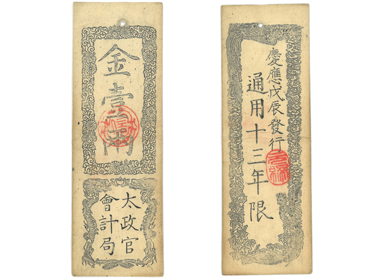 金壹兩
太政官
會計局
慶應戊辰發行
通用十三年限